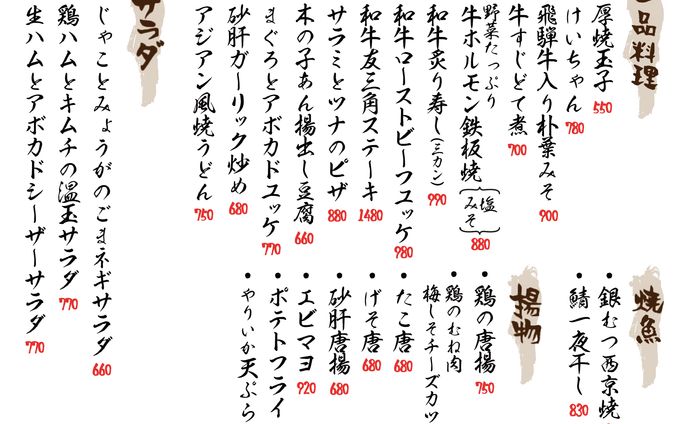 一品料理
厚焼玉子 550
けいちゃん 780
飛騨牛入り朴葉みそ 900
牛すじどて煮 700
野菜たっぷり
牛ホルモン鉄板焼(塩 みそ) 880
和牛炙り寿し(三カン) 990
和牛ローストビーフユッケ 980
和牛友三角ステーキ 1480
サラミとツナのピザ 880
木の子あん揚出し豆腐 660
まぐろとアボカドユッケ 770
砂肝ガーリック炒め 680
アジアン風焼うどん 750
サラダ
じゃことみょうがのごまネギサラダ 660
鶏ハムとキムチの温玉サラダ 770
生ハムとアボカドシーザーサラダ 770
焼魚
・銀むつ西京焼
・鯖一夜干し 830
揚物
・鶏の唐揚 750
・鶏のむね肉
梅しそチーズカツ
・たこ唐 680
・げそ唐 680
・砂肝唐揚 680
・エビマヨ 920
・ポテトフライ
・やりいか天ぷら